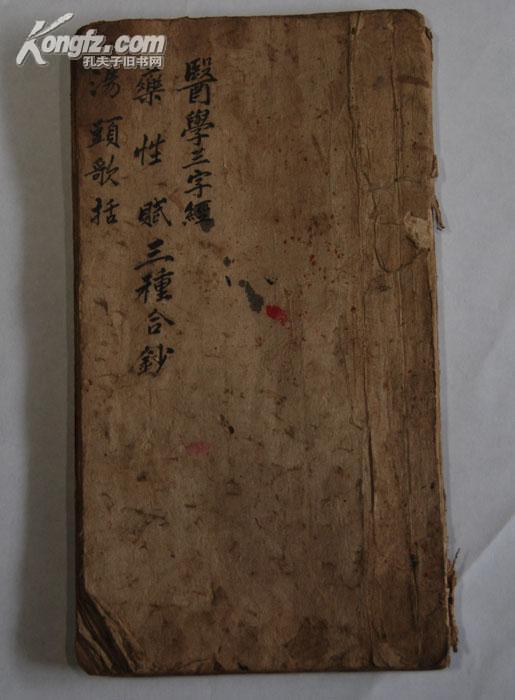 Kongfz.com
孔夫子旧书网
醫學三字經
藥性賦三種合鈔
湯頭歌括